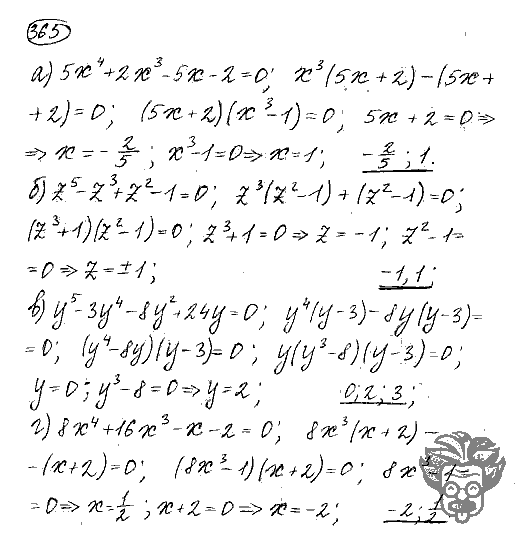 365
а) 5x⁴+2x³-5x-2=0; x³(5x+2)-(5x+
+2)=0; (5x+2)(x³-1)=0; 5x+2=0⇒
⇒ x=-2/5; x³-1=0⇒x=1; -2/5; 1.
б) z⁵-z³+z²-1=0; z³(z²-1)+(z²-1)=0;
(z³+1)(z²-1)=0; z³+1=0⇒z=-1; z²-1=
=0⇒z=±1; -1,1;
в) y⁵-3y⁴-8y²+24y=0; y⁴(y-3)-8y(y-3)=
=0; (y⁴-8y)(y-3)=0; y(y³-8)(y-3)=0;
y=0; y³-8=0⇒y=2; 0; 2; 3;
г) 8x⁴+16x³-x-2=0; 8x³(x+2)-
-(x+2)=0; (8x³-1)(x+2)=0; 8x³-1=
=0⇒x=1/2; x+2=0⇒x=-2; -2; 1/2